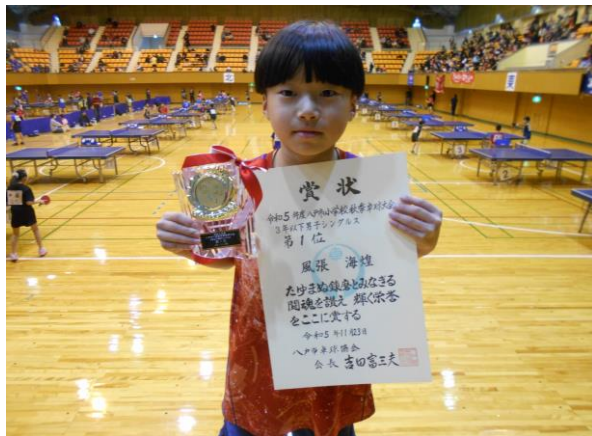 賞状
令和5年度八戸市小学校秋季卓球大会
3年以下男子シングルス
第1位
風張 海煌
たゆまぬ錬磨とみなぎる
闘魂を讃え 輝く栄誉
をここに賞する
令和5年11月23日
八戸市卓球協会
会長 吉田富三夫
3
2